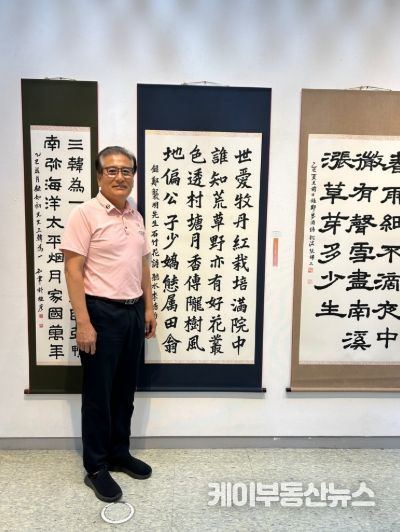 三韓為一
南弥海洋太平烟月家國萬年
世愛牡丹紅栽培滿院中
誰知荒草野亦有好花叢
色透村塘月香傳隴樹風
地偏公子少嬌態属田翁
錄鄭襲明先生石竹花詩
春雨細不滴夜中
微有聲雪盡南溪
漲草芽多少生
케이부동산뉴스